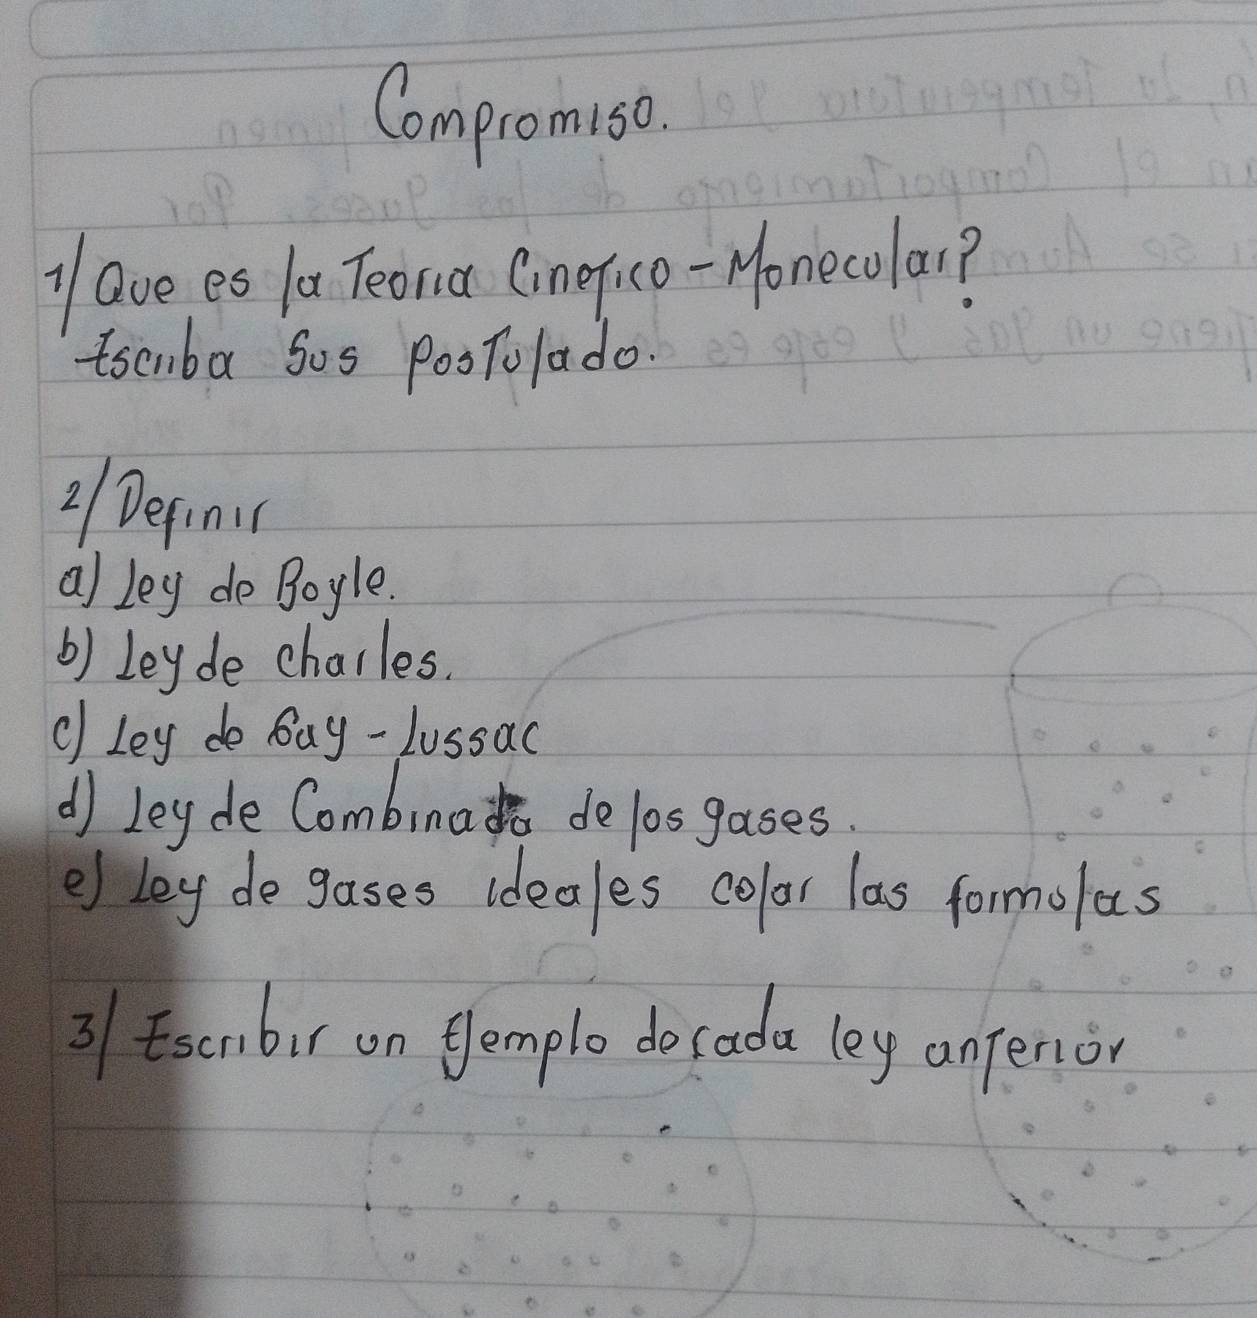 Compromiso.
1/ Que es la Teoria Cinetico - Monecular?
Escriba Sus Postulado.
2/ Definir
a) Ley de Boyle.
b) Ley de charles.
c) Ley de Gay - Lussac
d) Ley de Combinada de los gases.
e) Ley de gases ideales colar las formulas
3/ Escribir un Ejemplo de cada ley anterior